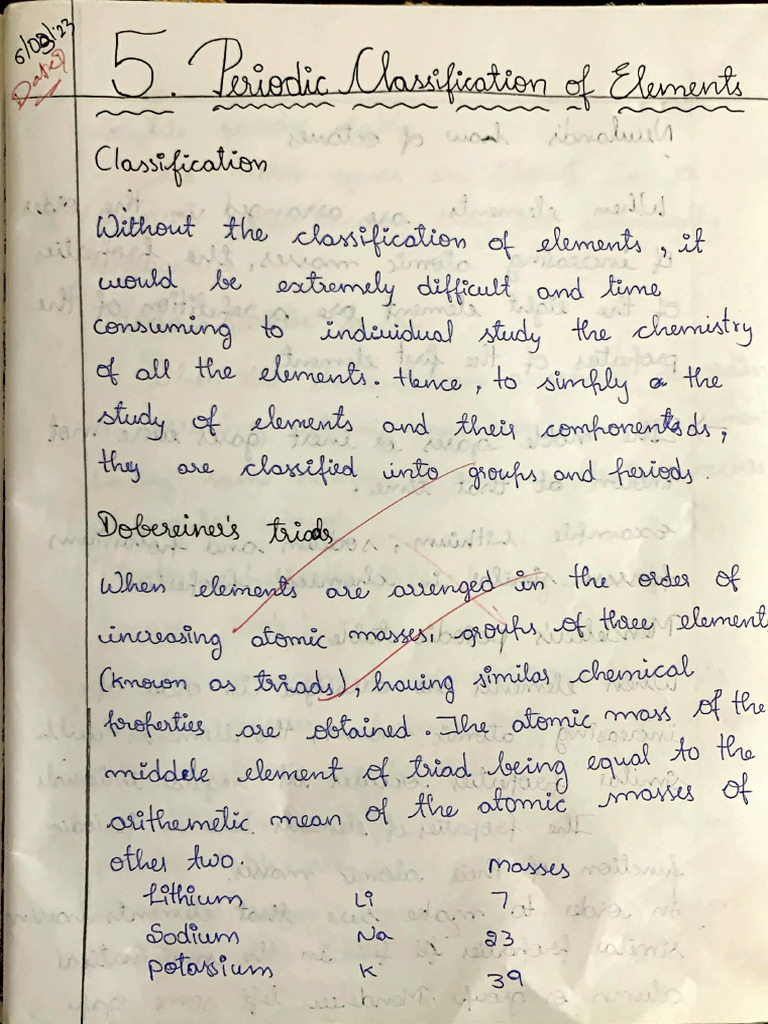 6/09/23
Date
5. Periodic Classification of Elements
Classification
Without the classification of elements, it
would be extremely difficult and time
consuming to individual study the chemistry
of all the elements. Hence, to simply the
study of elements and their componentsds,
they are classified into groups and periods.
Dobereiner's triads
When elements are arrenged in the order of
increasing atomic masses, groups of three element
(known as triads), having similar chemical
properties are obtained. The atomic mass of the
middele element of triad being equal to the
arithemetic mean of the atomic masses of
other two. Masses
Lithium Li 7
Sodium Na 23
Potassium K 39